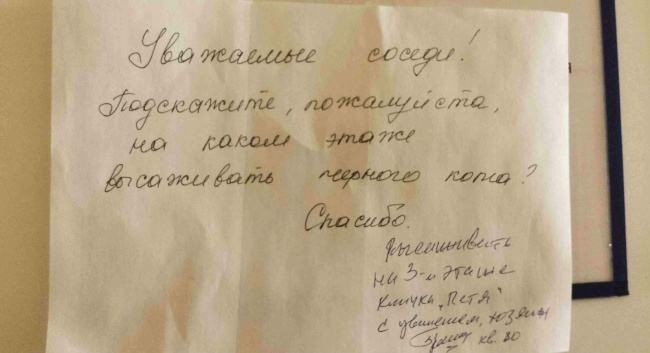 Уважаемые соседи!
Подскажите, пожалуйста,
на каком этаже
высаживать черного кота?
Спасибо.
Высаживать
на 3-м этаже
кличка „Петя"
с уважением, хозяева
кв. 80